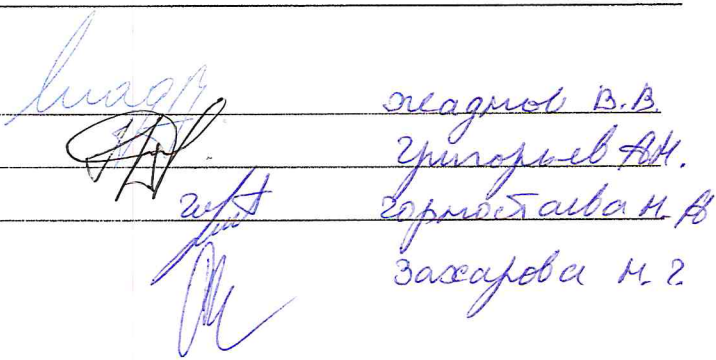 Жаднов В.В.
Григорьев А.Н.
Горностаева Н.А
Захарова Н.Г.